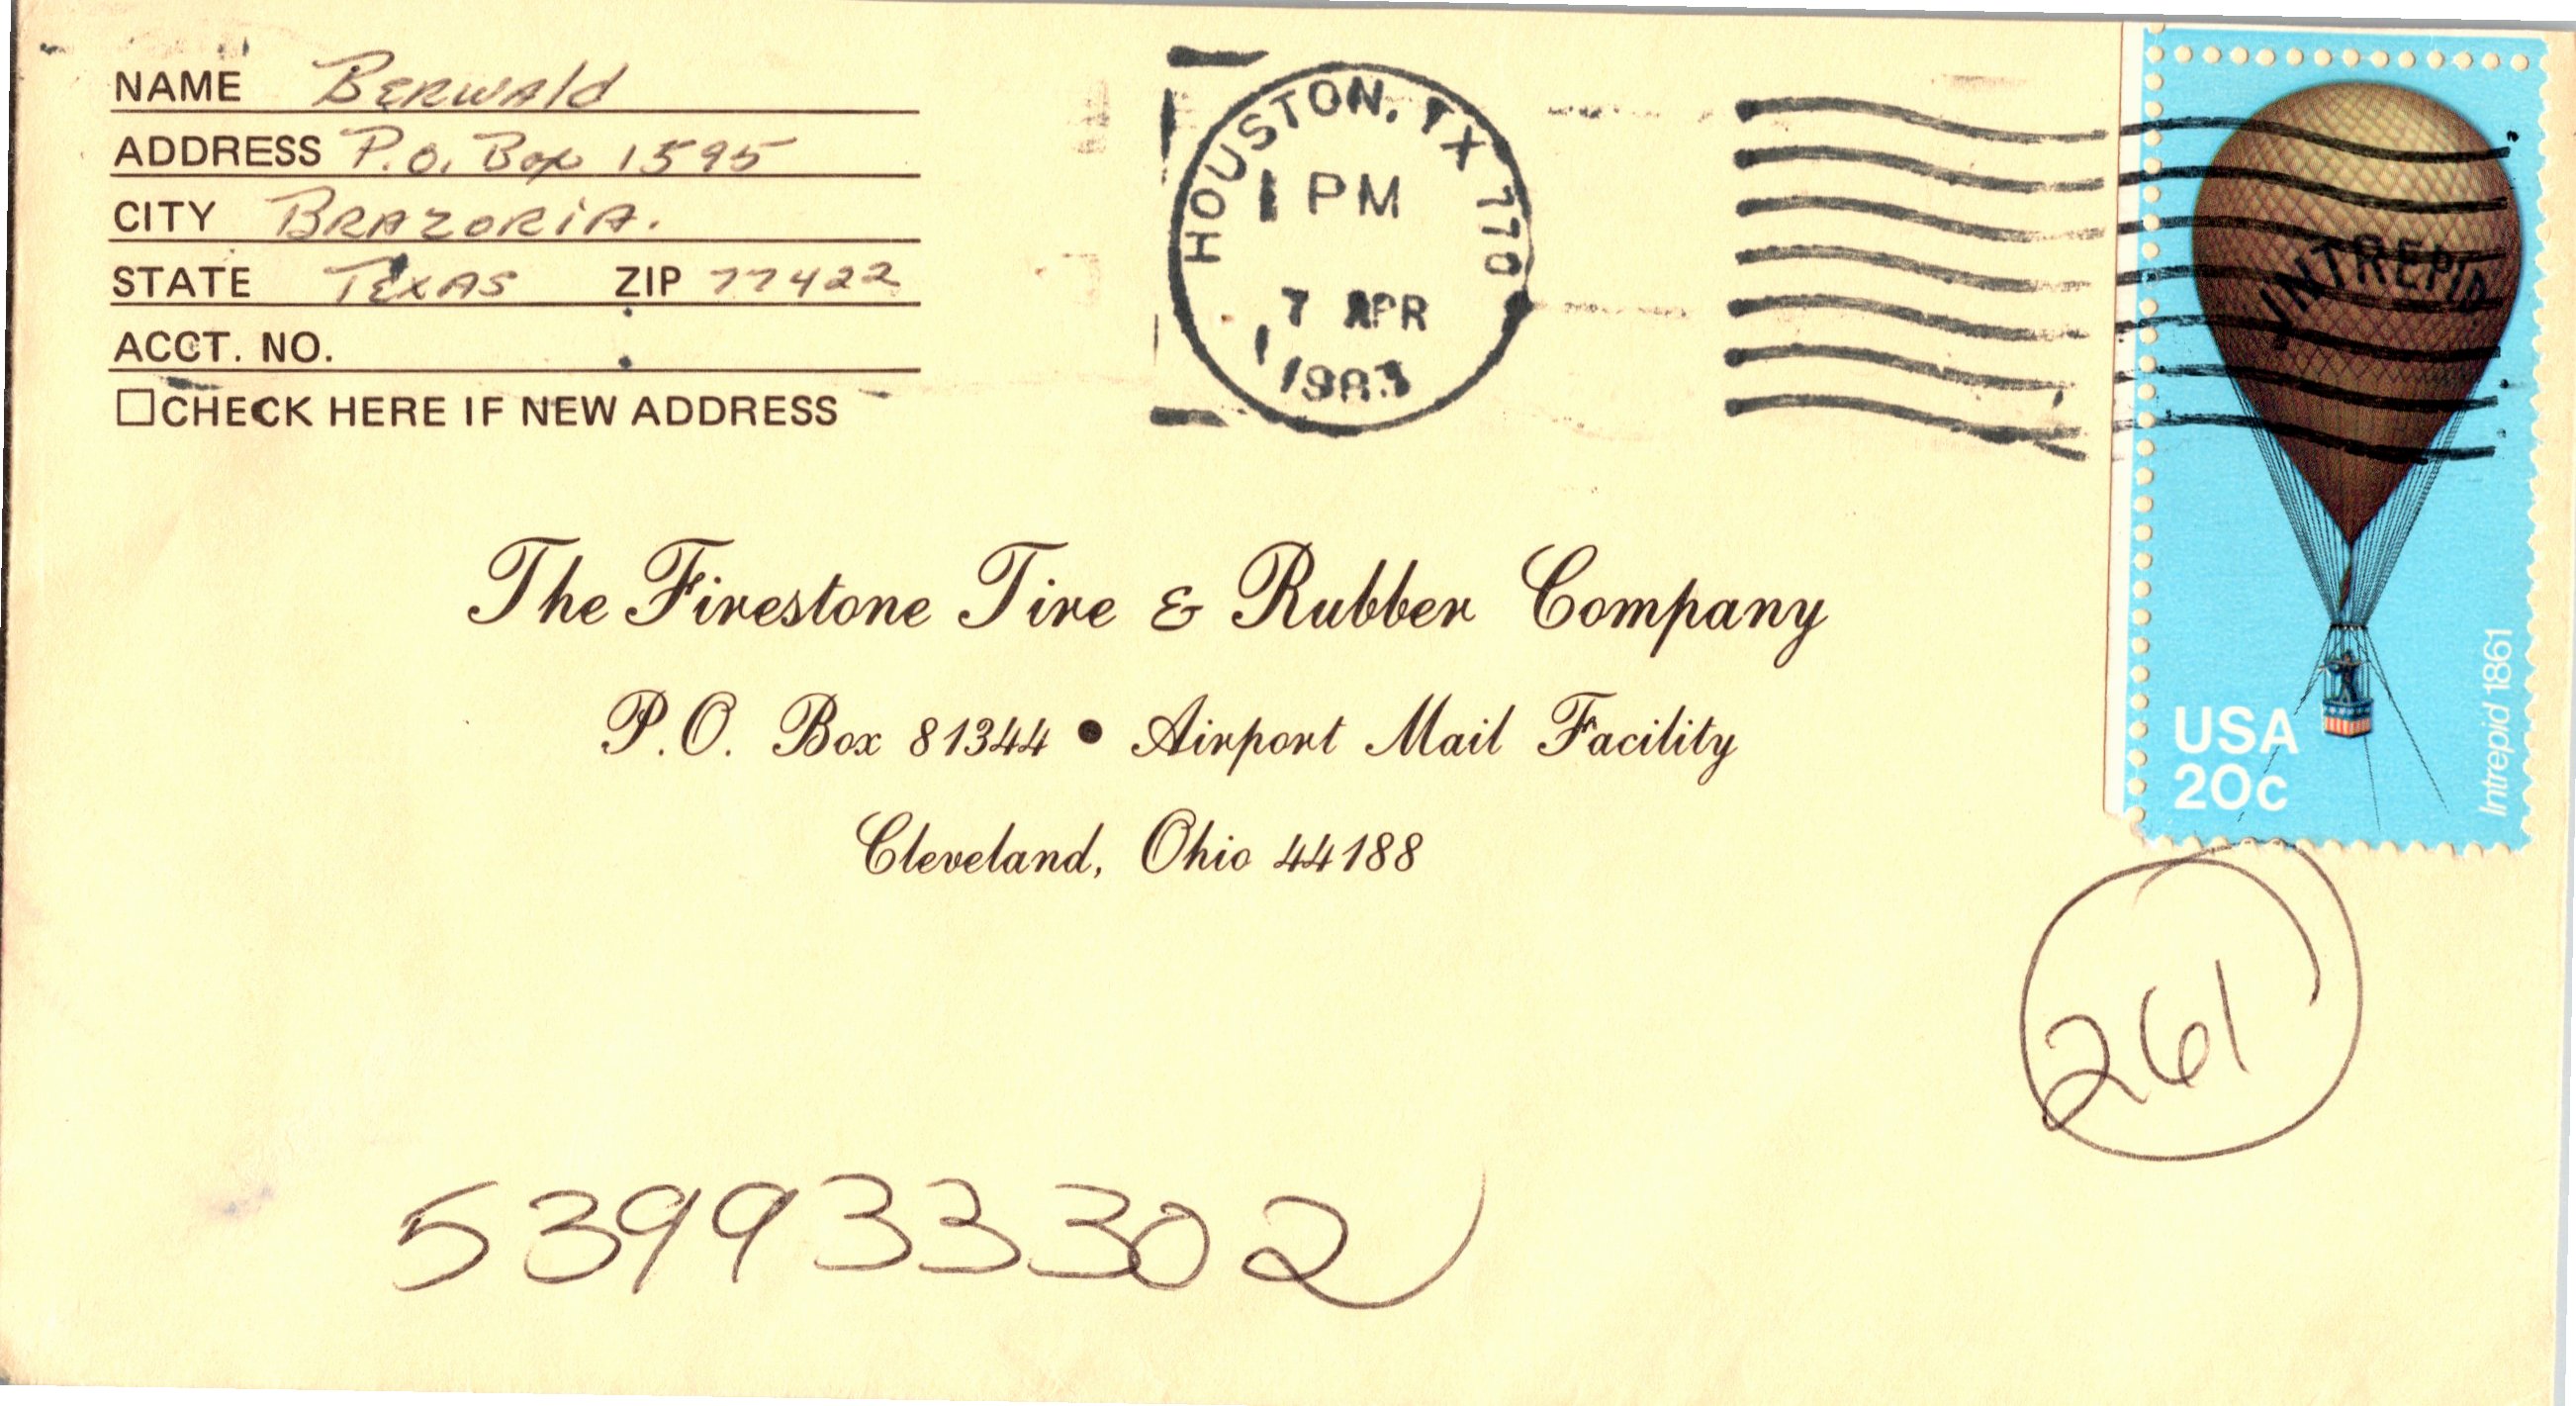 NAME Berwald
ADDRESS P.O. Box 1595
CITY Brazoria.
STATE Texas ZIP 77422
ACCT. NO.
☐CHECK HERE IF NEW ADDRESS
HOUSTON, TX 770
1 PM
7 APR
1983
INTREPID
USA
20c
Intrepid 1861
The Firestone Tire & Rubber Company
P.O. Box 81344 • Airport Mail Facility
Cleveland, Ohio 44188
261
539933302